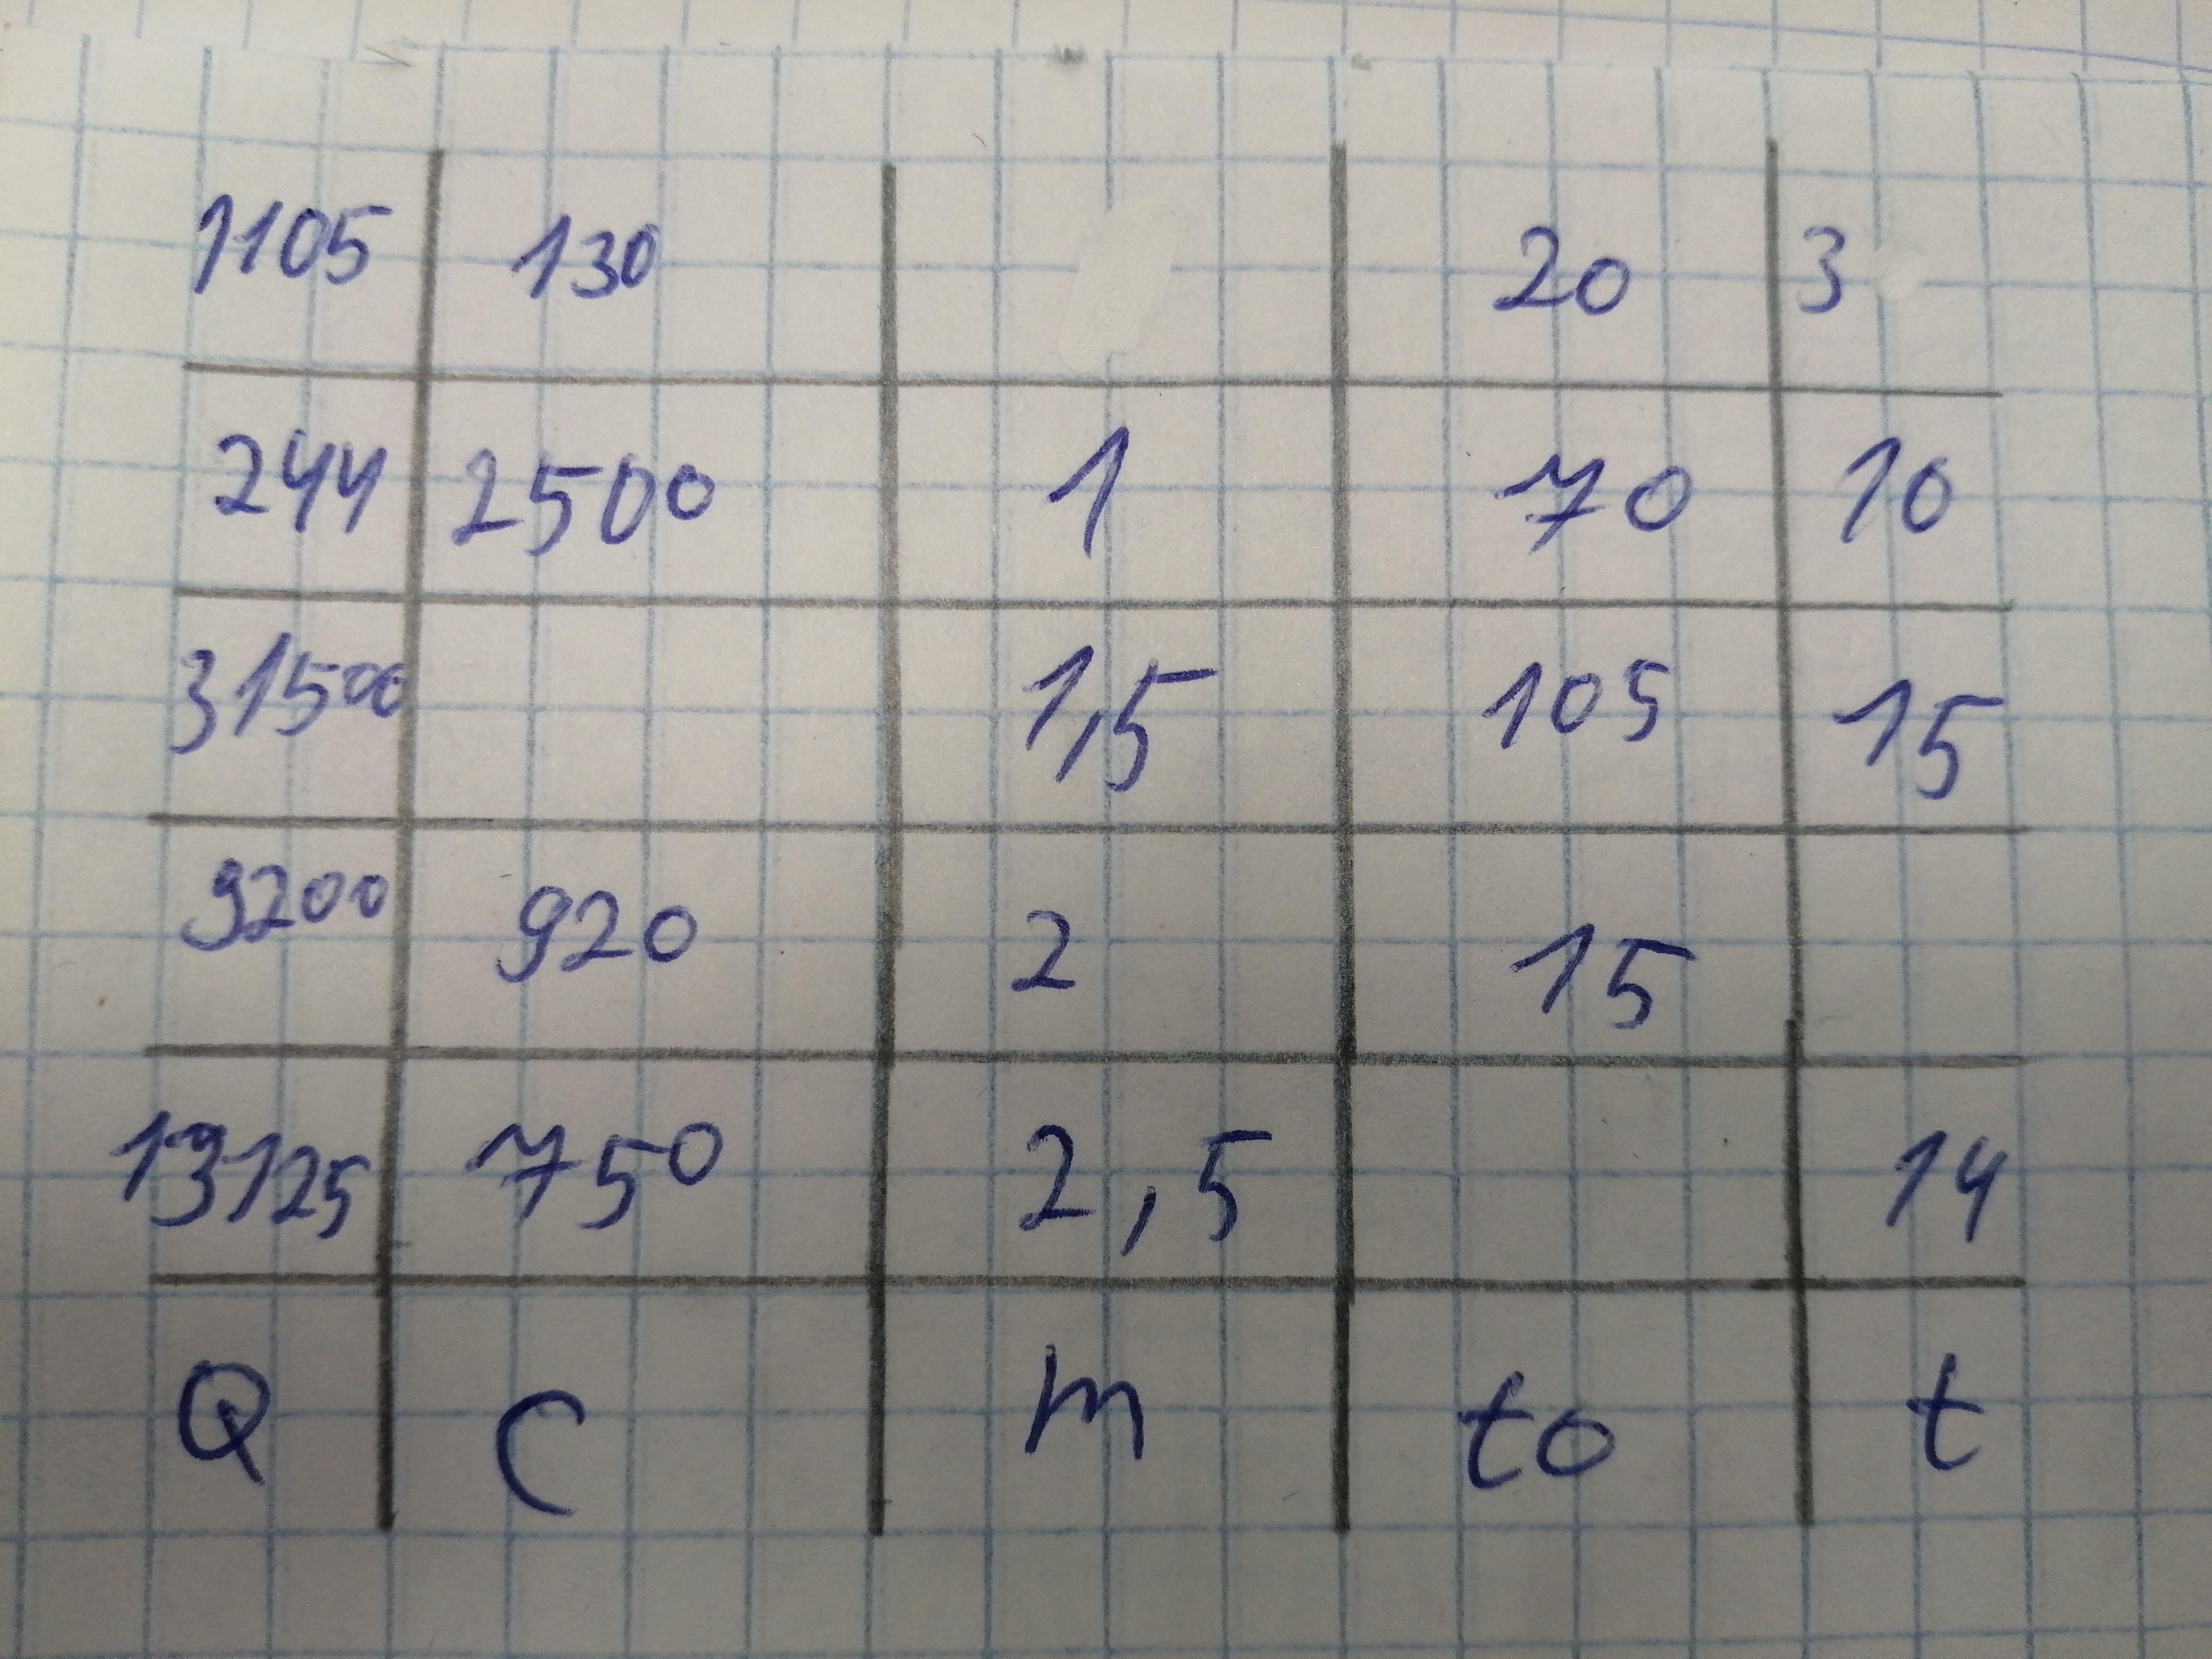 1105 130 20 3
244 2500 1 70 10
31500 1,5 105 15
9200 920 2 15
13125 750 2,5 14
Q C m to t